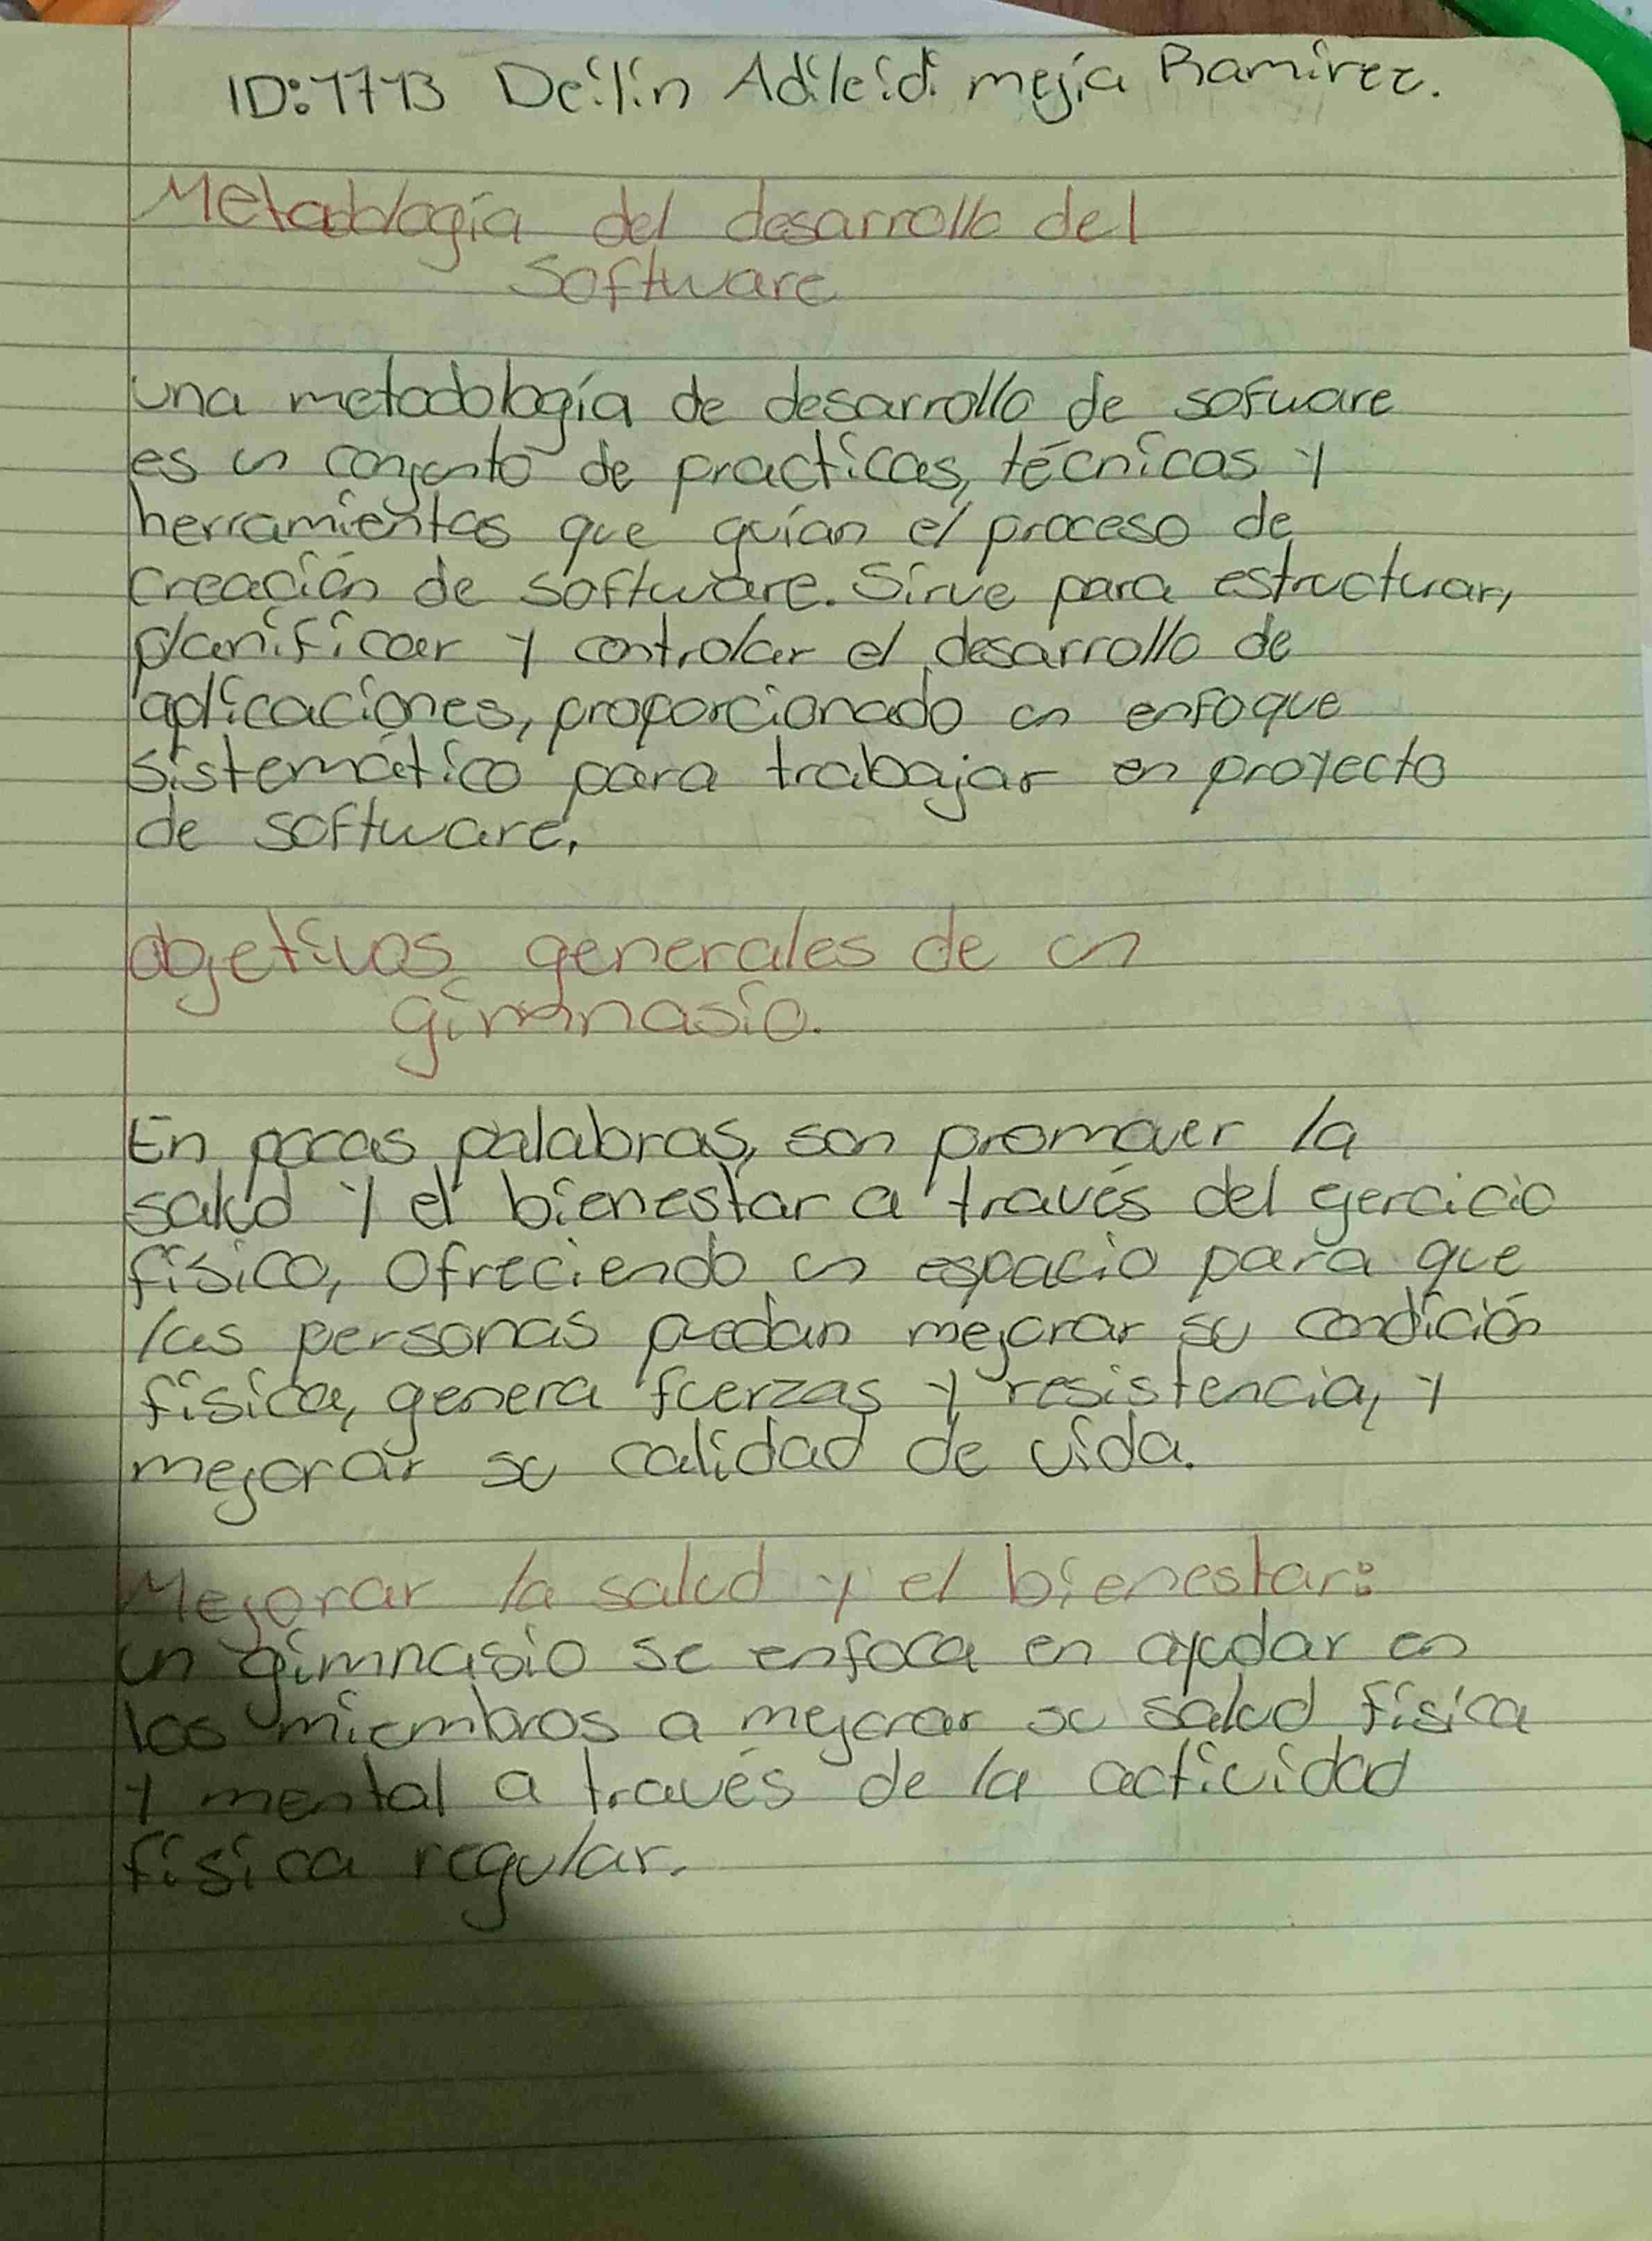 ID: 7773 Deilin Adileidi mejía Ramirez.
Metodología del desarrollo del
Software
una metodología de desarrollo de sofware
es un conjunto de practicas, técnicas y
herramientas que guían el proceso de
creación de software. Sirve para estructurar,
planificar y controlar el desarrollo de
aplicaciones, proporcionado un enfoque
sistemático para trabajar en proyecto
de software.
objetivos generales de un
gimnasio.
En pocas palabras, son promover la
salud y el bienestar a través del ejercicio
físico, ofreciendo un espacio para que
las personas puedan mejorar su condición
física, genera fuerzas y resistencia, y
mejorar su calidad de vida.
Mejorar la salud y el bienestar:
un gimnasio se enfoca en ayudar en
los miembros a mejorar su salud física
y mental a través de la actividad
física regular.